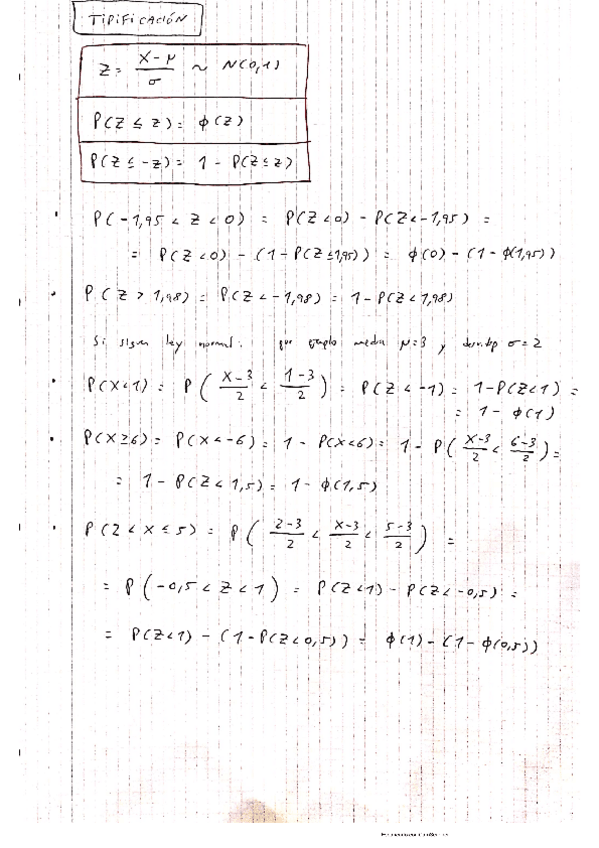 TIPIFICACIÓN
Z = (X-μ)/σ ~ N(0,1)
P(Z ≤ z) = φ(z)
P(Z ≤ -z) = 1 - P(Z ≤ z)
· P(-1,95 < Z < 0) = P(Z<0) - P(Z<-1,95) =
= P(Z<0) - (1-P(Z≤1,95)) = φ(0) - (1-φ(1,95))
· P(Z > 1,98) = P(Z < -1,98) = 1 - P(Z < 1,98)
Si siguen ley normal: por ejemplo media μ=3 y desv. tip σ=2
· P(X<1) = P((X-3)/2 < (1-3)/2) = P(Z < -1) = 1-P(Z<1) =
= 1 - φ(1)
· P(X≥6) = P(X<-6) = 1 - P(X<6) = 1 - P((X-3)/2 < (6-3)/2) =
= 1 - P(Z < 1,5) = 1 - φ(1,5)
· P(2 < X ≤ 5) = P((2-3)/2 < (X-3)/2 < (5-3)/2) =
= P(-0,5 < Z < 1) = P(Z<1) - P(Z<-0,5) =
= P(Z<1) - (1-P(Z<0,5)) = φ(1) - (1-φ(0,5))